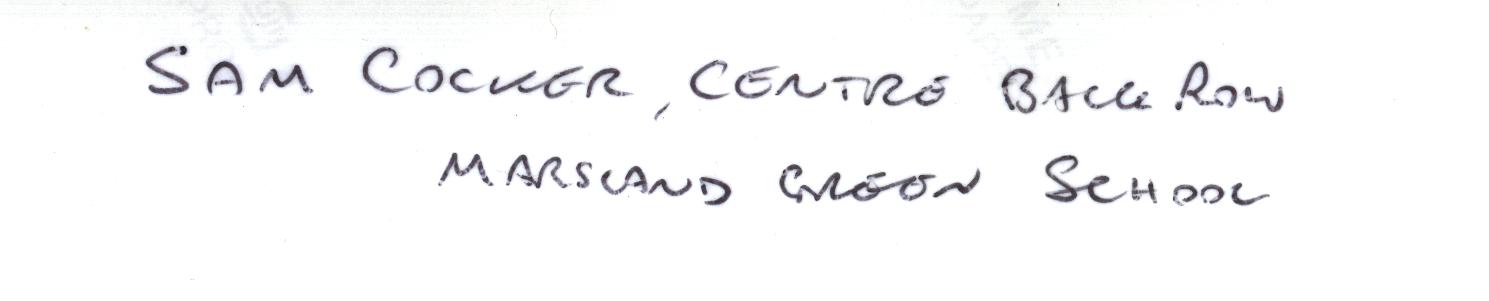 SAM COCKER, CENTRE BACK ROW
MARSLAND GREEN SCHOOL